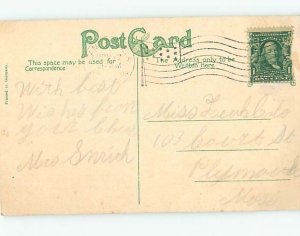 Post Card
This space may be used for
Correspondence
The Address only to be
Written Here
Printed in Germany.
With best
Wishes from
your
Mrs
Miss Leah
103 Court St
Plymouth
Mass